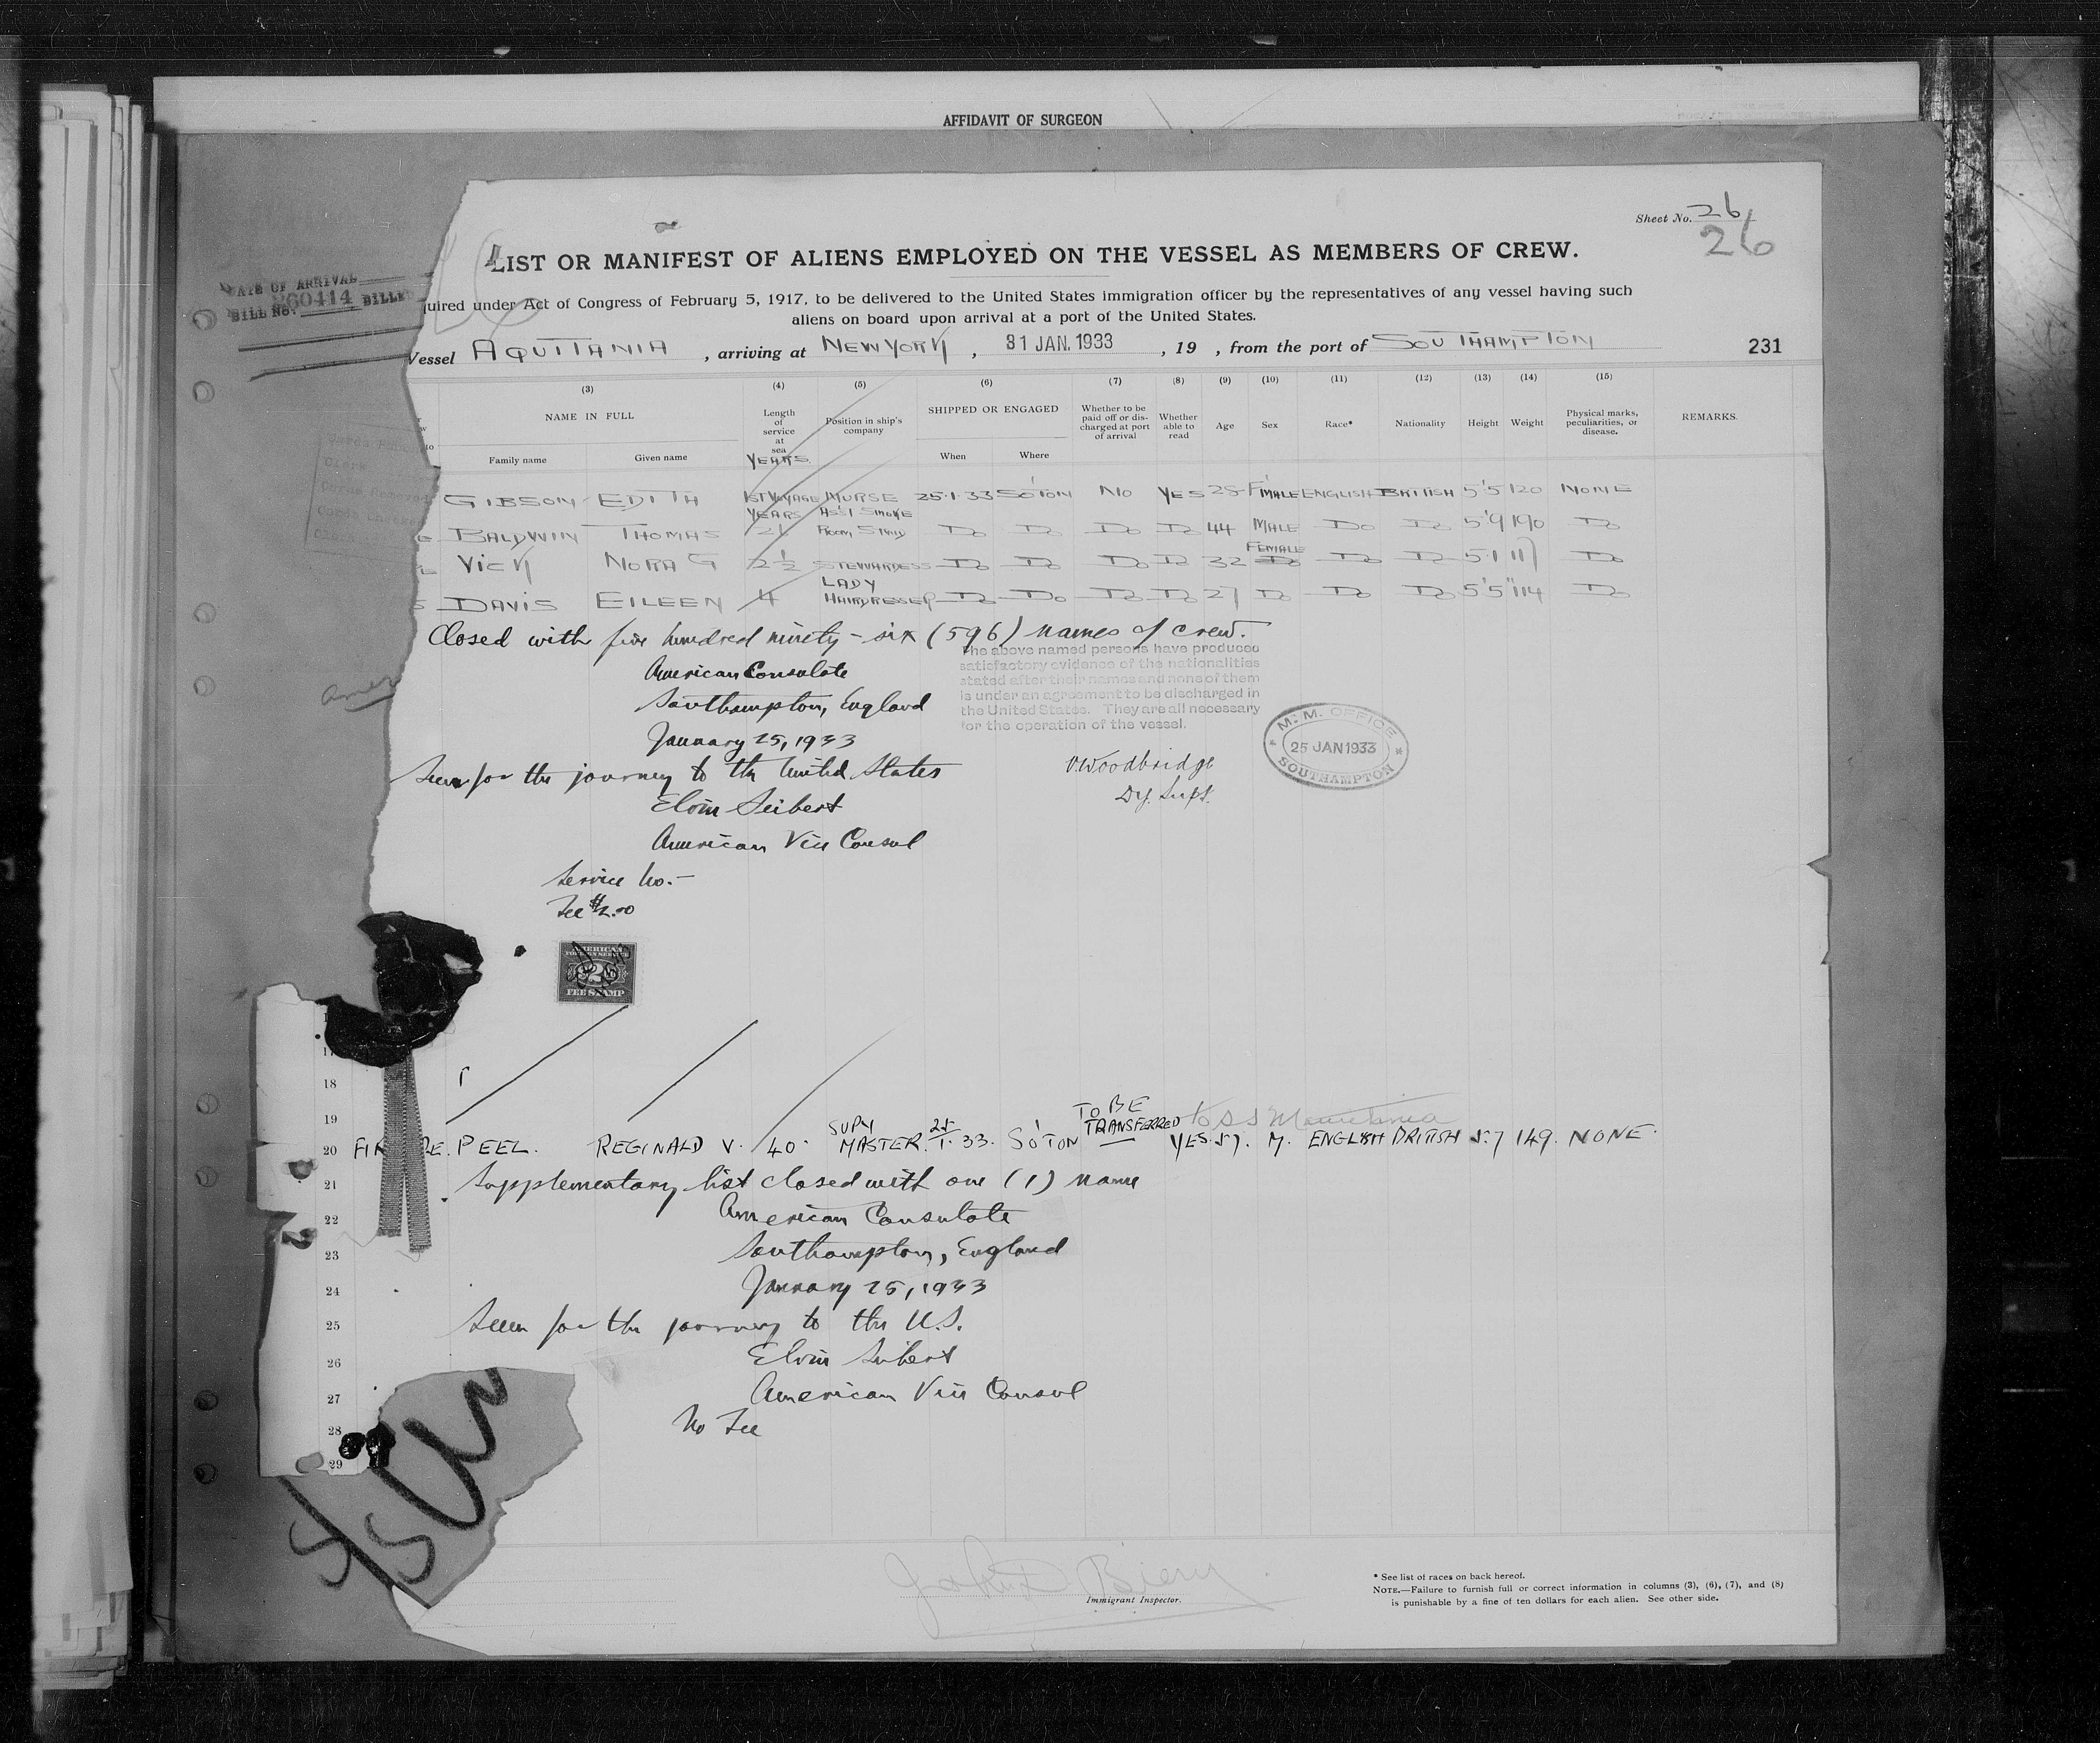 AFFIDAVIT OF SURGEON
Sheet No. 26
26
LIST OR MANIFEST OF ALIENS EMPLOYED ON THE VESSEL AS MEMBERS OF CREW.
DATE OF ARRIVAL
BILL No. 260414 BILLED
quired under Act of Congress of February 5, 1917, to be delivered to the United States immigration officer by the representatives of any vessel having such
aliens on board upon arrival at a port of the United States.
Vessel AQUITANIA , arriving at NEW YORK , 31 JAN. 1933 , 19 , from the port of SOUTHAMPTON 231
(3) (4) (5) (6) (7) (8) (9) (10) (11) (12) (13) (14) (15)
NAME IN FULL Length of service at sea YEARS Position in ship's company SHIPPED OR ENGAGED Whether to be paid off or discharged at port of arrival Whether able to read Age Sex Race* Nationality Height Weight Physical marks, peculiarities, or disease. REMARKS.
Family name Given name When Where
GIBSON EDITH 1ST VOYAGE NURSE 25.1.33 SO'TON NO YES 28 F'MALE ENGLISH BRITISH 5'5 120 NONE
BALDWIN THOMAS YEARS ASST SMOKE ROOM Do Do Do Do 44 MALE Do Do 5'9 190 Do
VICK NORA G 2½ STEWARDESS Do Do Do Do 32 FEMALE Do Do 5.1 117 Do
DAVIS EILEEN 4 LADY HAIRDRESSER Do Do Do Do 27 Do Do Do 5'5" 114 Do
Closed with five hundred ninety-six (596) names of crew.
American Consulate
Southampton, England
January 25, 1933
The above named persons have produced
satisfactory evidence of the nationalities
stated after their names and none of them
is under an agreement to be discharged in
the United States. They are all necessary
for the operation of the vessel.
M. M. OFFICE
25 JAN 1933
SOUTHAMPTON
Seen for the journey to the United States
V. Woodbridge
Dy. Supt.
Elvin Seibert
American Vice Consul
Service No.-
Fee $2.00
AMERICAN
FOREIGN SERVICE
2
FEE STAMP
17
18
19
TO BE TRANSFERRED to SS Mauretania
20 PEEL. REGINALD V. 40 SUPY MASTER. 25.1.33. SO'TON YES 57. M. ENGLISH BRITISH 5.7 149. NONE.
21 Supplementary list closed with one (1) name
22 American Consulate
23 Southampton, England
24 January 25, 1933
25 Seen for the journey to the U.S.
26 Elvin Seibert
27 American Vice Consul
28 No Fee
29
John D Biery
Immigrant Inspector.
* See list of races on back hereof.
NOTE.—Failure to furnish full or correct information in columns (3), (6), (7), and (8)
is punishable by a fine of ten dollars for each alien. See other side.